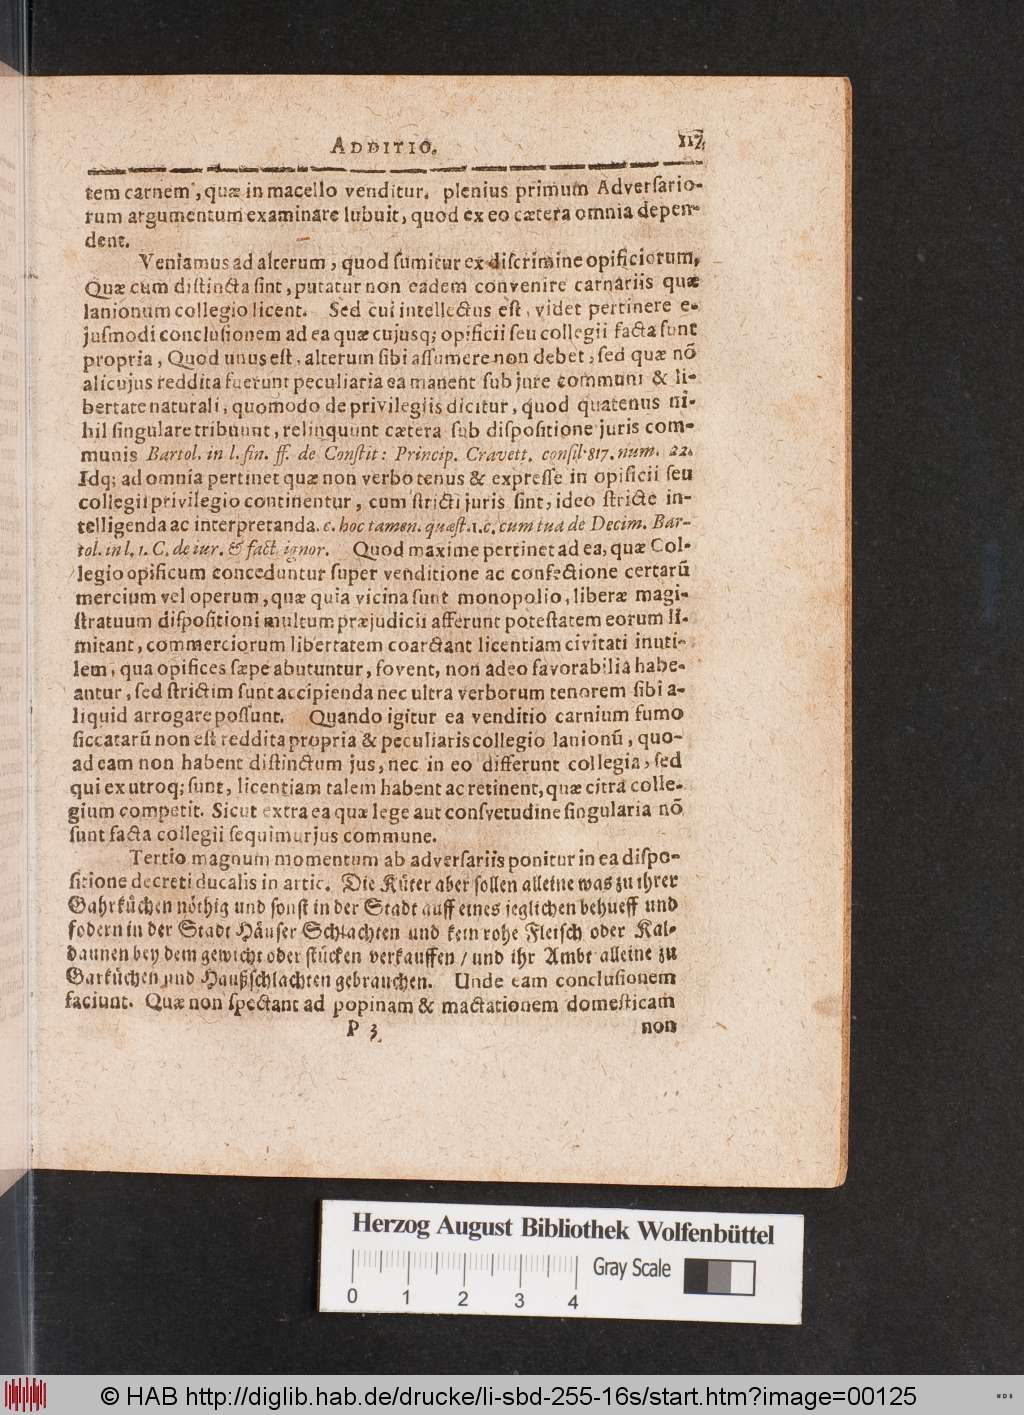 ADDITIO. 117.
tem carnem, quæ in macello venditur. plenius primum Adverſario-
rum argumentum examinare lubuit, quod ex eo cætera omnia depen-
dent.
Veniamus ad alterum, quod ſumitur ex diſcrimine opificiorum,
Quæ cum diſtincta ſint, putatur non eadem convenire carnariis quæ
lanionum collegio licent. Sed cui intellectus eſt, videt pertinere e-
juſmodi concluſionem ad ea quæ cujusq; opificii ſeu collegii facta ſunt
propria, Quod unus eſt, alterum ſibi aſſumere non debet, ſed quæ nõ
alicujus reddita fuerunt peculiaria ea manent ſub jure communi & li-
bertate naturali, quomodo de privilegiis dicitur, quod quatenus ni-
hil ſingulare tribuunt, relinquunt cætera ſub diſpoſitione juris com-
munis Bartol. in l. fin. ff. de Conſtit: Princip. Cravett. conſil. 817. num. 22.
Idq; ad omnia pertinet quæ non verbotenus & expreſſe in opificii ſeu
collegii privilegio continentur, cum ſtricti juris ſint, ideo ſtricte in-
telligenda ac interpretanda. c. hoc tamen. quæſt. 1. c. cum tua de Decim. Bar-
tol. in l. 1. C. de iur. & fact. ignor. Quod maxime pertinet ad ea, quæ Col-
legio opificum conceduntur ſuper venditione ac confectione certarũ
mercium vel operum, quæ quia vicina ſunt monopolio, liberæ magi-
ſtratuum diſpoſitioni multum præjudicii afferunt poteſtatem eorum li-
mitant, commerciorum libertatem coarctant licentiam civitati inuti-
lem, qua opifices ſæpe abutuntur, fovent, non adeo favorabilia habe-
antur, ſed ſtrictim ſunt accipienda nec ultra verborum tenorem ſibi a-
liquid arrogare poſſunt. Quando igitur ea venditio carnium fumo
ſiccatarũ non eſt reddita propria & peculiaris collegio lanionũ, quo-
ad eam non habent diſtinctum jus, nec in eo differunt collegia, ſed
qui ex utroq; ſunt, licentiam talem habent ac retinent, quæ citra colle-
gium competit. Sicut extra ea quæ lege aut conſvetudine ſingularia nõ
ſunt facta collegii ſequimur jus commune.
Tertio magnum momentum ab adverſariis ponitur in ea diſpo-
ſitione decreti ducalis in artic. Die Küter aber ſollen alleine was zu ihrer
Gahrküchen nöthig und ſonſt in der Stadt auff eines jeglichen behueff und
fodern in der Stadt Häuſer Schlachten und kein rohe Fleiſch oder Kal-
daunen bey dem gewicht oder ſtücken verkauffen / und ihr Ambt alleine zu
Garküchen und Haußſchlachten gebrauchen. Unde eam concluſionem
faciunt. Quæ non ſpectant ad popinam & mactationem domeſticam
P 3 non
Herzog August Bibliothek Wolfenbüttel
Gray Scale
0 1 2 3 4
© HAB http://diglib.hab.de/drucke/li-sbd-255-16s/start.htm?image=00125